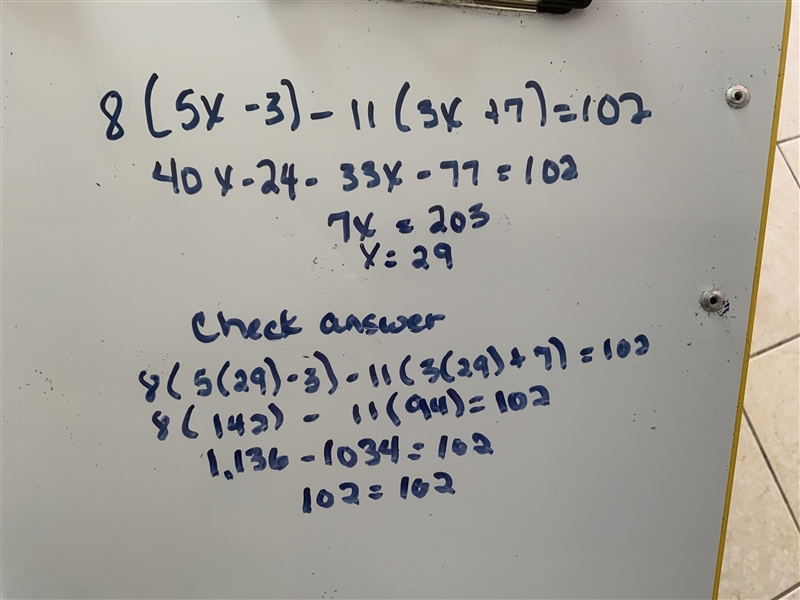 8(5x-3)-11(3x+7)=102
40x-24-33x-77=102
7x=203
x=29
Check answer
8(5(29)-3)-11(3(29)+7)=102
8(142)-11(94)=102
1,136-1034=102
102=102